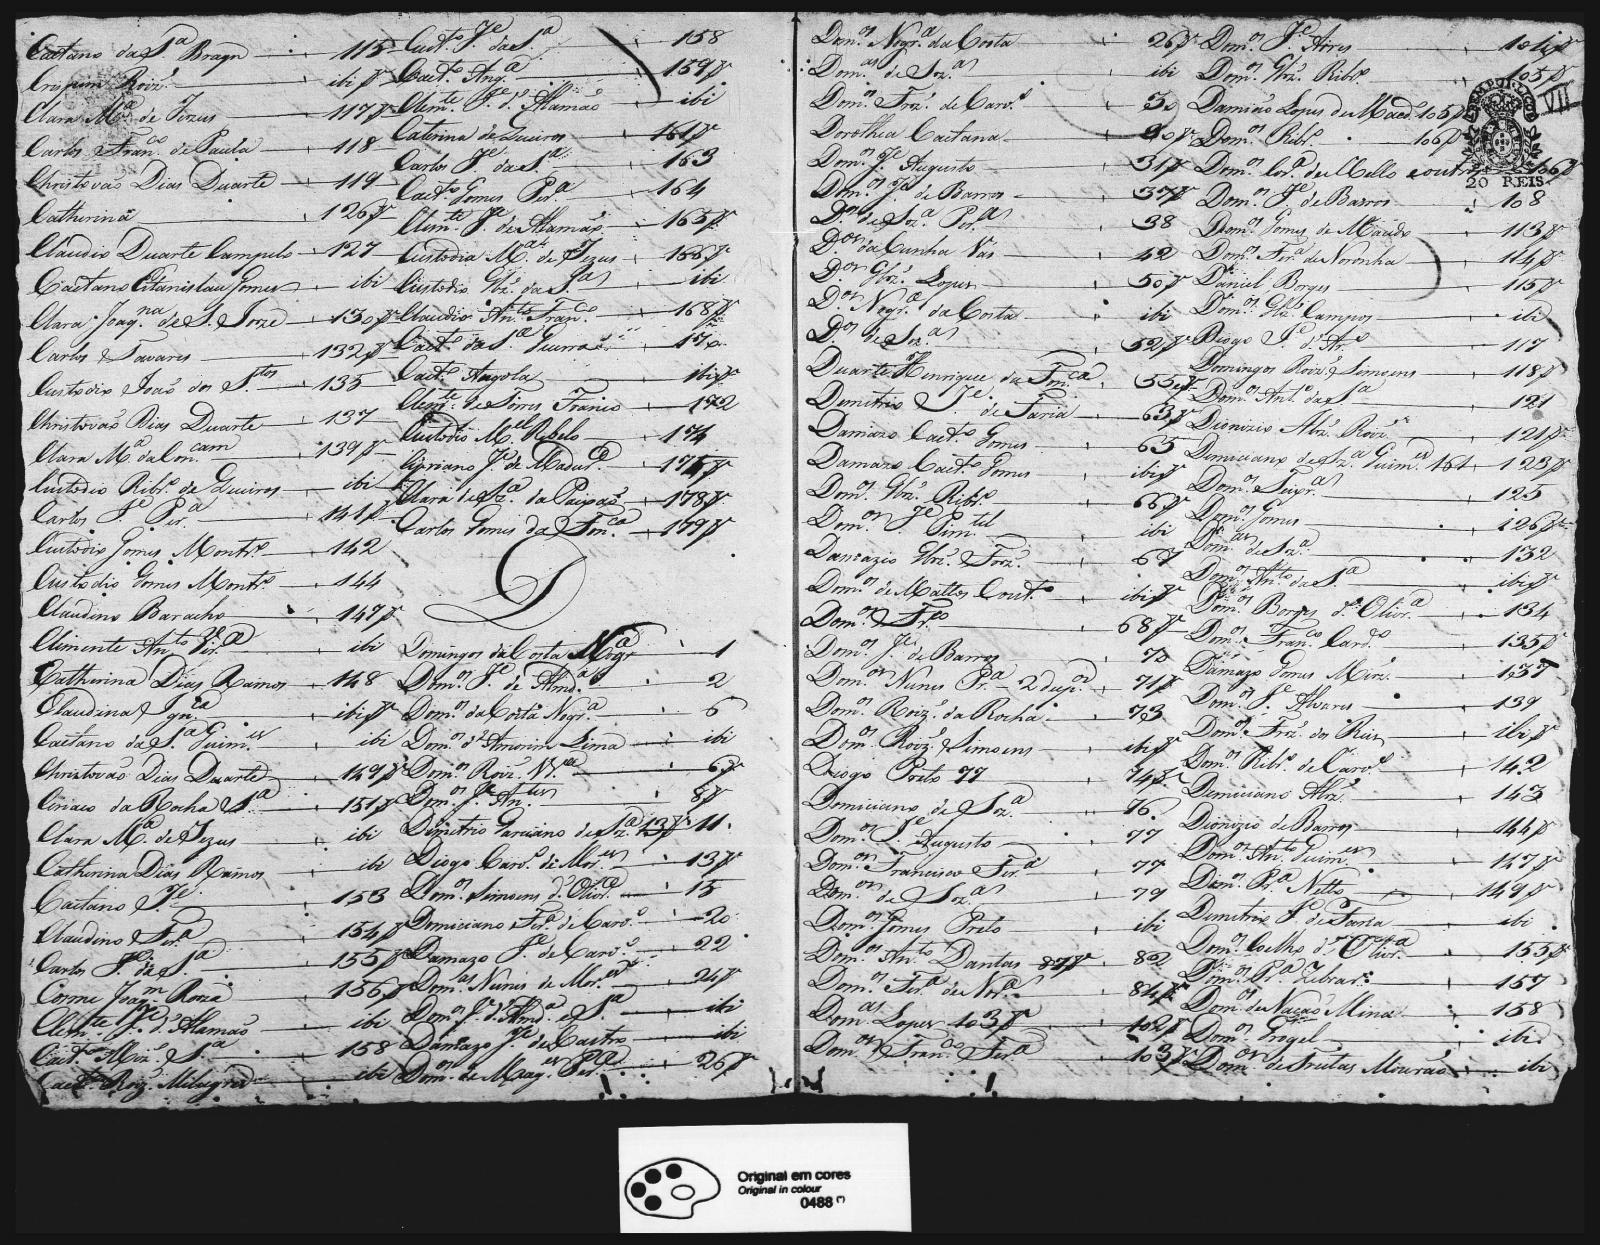 Caetano da S.a Braga 115
Crispim Roiz. ibi v
Clara M.a de Jezus 117 v
Carlos Fran.co de Paula 118
Christovaõ Dias Duarte 119
Catherina 126 v
Claudio Duarte Campelo 127
Caetano Estanislau Gomes ibi
Clara Joaq.na de S. Joze 130 v
Carlos Tavares 132 v
Custodio João dos S.tos 135
Christovaõ Dias Duarte 137
Clara M.a da Con.cam 139 v
Custodio Ribr.o de Queiros ibi
Carlos J.e Per.a 141 v
Custodio Gomes Montr.o 142
Custodio Gomes Montr.o 144
Claudino Baracho 147 v
Climente An.to Vir.a ibi
Catherina Dias Ramos 148
Claudina Ign.ca ibi v
Caetano da S.a Guim.es ibi
Christovaõ Dias Duarte 149 v
Ciriaco da Rocha S.a 151 v
Clara M.a de Jezus ibi
Catherina Dias Ramos ibi
Caetano J.e 153
Claudino Fer.a 154 v
Carlos J.e da S.a 155 v
Cosme Joaq.m Roza 156 v
Clem.te J.e d'Alamaõ ibi
Caet.o Miz. S.a 158
Caet.o Roiz. Milagres ibi
Caet.o J.e da S.a 158
Caet.o Ang.a 159 v
Clem.te J.e d'Alamaõ ibi
Caterina de Queiros 161 v
Carlos J.e da S.a 163
Caet.o Gomes Per.a 164
Clem.te J.e de Alamaõ 165 v
Custodia M.a de Jezus 168 v
Custodio Glz. da S.a ibi
Claudio An.to Fran.co 168 v
Caet.o da S.a Guerra 170
Caet.o Angola ibi v
Clem.te de Torres Franco 172
Custodio M.el Rebelo 174
Cipriano J.e de Madur.a 175 v
Clara de Sz.a da Paixaõ 178 v
Carlos Gomes da Fon.ca 179 v
D
Domingos da Costa Nogr.a 1
Dom.os J.e de Almd.a 2
Dom.os da Costa Nogr.a 6
Dom.os d'Amorim Lima ibi
Dom.os Roiz. V.a 6 v
Dom.os J.e An.tes 8 v
Demetrio Garciano de Sz.a 13 v 11
Diogo Carv.o de Mor.es 13 v
Dom.os Simoens d'Olivr.a 15
Domiciano Fer.a de Carv.o 20
Damazo J.e de Carv.o 22
Dom.as Nunes de Mor.es 24 v
Dom.os J.e d'Almd.a e S.a ibi
Damazo J.e de Castro ibi
Dom.os de Mag.es Per.a 26 v
Dom.os Nogr.a da Costa 26 v
Dom.as de Soz.a ibi
Dom.os Frz. de Carv.o 30
Dorothea Caetana 30 v
Dom.os J.e Augusto 31 v
Dom.os J.e de Barros 37 v
D.os de Soz.a Per.a 38
D.os da Cunha Vas 42
D.os Glz. Lopes 50 v
D.os Nogr.a da Costa ibi
D.os de Soz.a 52 v
Duarte Henrique da Fon.ca 55 v
Demetrio J.e de Faria 63 v
Damiano Caet.o Gomes 65
Damazo Caet.o Gomes ibi v
Dom.os Glz. Ribr.o 66 v
Dom.os J.e Pim.tel ibi
Damazio Glz. Frz. 67
Dom.os de Mattos Cout.o ibi v
Dom.os Fr.co 68 v
Dom.os J.e de Barros 70
Dom.os Nunes Pr.a 2 dup.os 71 v
Dom.os Roiz. da Rocha 73
Dom.os Roiz. Simoens ibi v
Diogo Porto 77 74 v
Domiciano de Soz.a 76
Dom.os J.e Augusto 77
Dom.os Francisco Fer.a 77
Dom.os de Soz.a 79
Dom.os Gomes Preto ibi
Dom.os An.to Dantas 87 v 82
Dom.os Fer.a de Vr.a 84 v
Dom.as Lopes 103 v 102 v
Dom.os Fran.co Fer.a 103 v
Dom.os J.e Aires 104 v
Dom.os Glz. Ribr.o 105 v
Damiaõ Lopes de Maced.o 105 v
Dom.os Ribr.o 106 v
Dom.os Cor.a de Mello e outro 106 v
Dom.os J.e de Barros 108
Dom.os Gomes de Macedo 113 v
Dom.os Fer.a de Noronha 114 v
Daniel Borges 115 v
Dom.os Glz. Campos ibi
Diogo J.e d'Ar.o 117
Domingos Roiz. Simoens 118 v
Dom.os Ant.o da S.a 121
Dionizio Alvz. Roiz. 121 v
Domiciano de Sz.a Guim.es 161 123 v
Dom.os Teixr.a 125
Dom.os Gomes 126 v
Dom.as de Sz.a 132
Dom.os An.to da S.a ibi v
Dom.os Borges d'Olivr.a 134
Dom.os Fran.co Card.o 135 v
Damazo Gomes Miz. 137
Dom.os J.e Alvares 139
Dom.os Frz. dos Reis ibi v
Dom.os Ribr.o de Carv.o 142
Domiciano Alvz. 143
Dionizio de Barros 144 v
Dom.os An.to Guim.es 147 v
Dom.os Pr.a Netto 149 v
Demetrio J.e de Faria ibi
Dom.os Coelho d'Olivr.a 155 v
Dom.os Pr.a Zebrar 157
Dom.os de Nação Mina 158
Dom.os Progel ibi
Dom.os de Freitas Mouraõ ibi
VII
20 REIS
Original em cores
Original in colour
0488 (*)